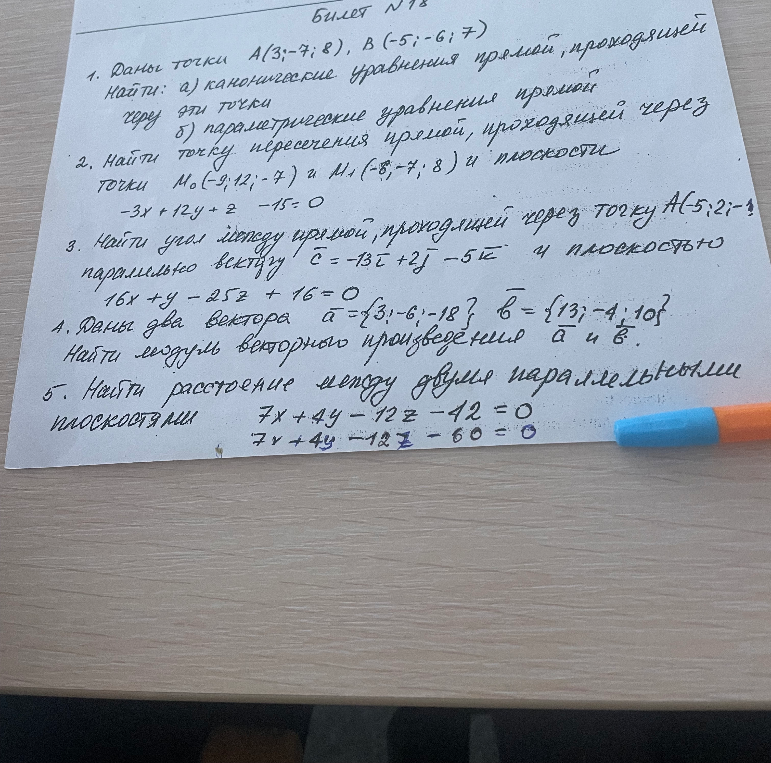 Билет N 18
1. Даны точки A(3;-7;8), B(-5;-6;7)
Найти: а) канонические уравнения прямой, проходящей
через эти точки
б) параметрические уравнения прямой
2. Найти точку пересечения прямой, проходящей через
точки M₀(-9;12;-7) и M₁(-6;-7;8) и плоскости
-3x+12y+z -15=0
3. Найти угол между прямой, проходящей через точку A(-5;2;-
параллельно вектору c̄ = -13ī +2j̄ -5k̄ и плоскостью
16x+y-25z+16=0
4. Даны два вектора ā={3;-6;-18}, b̄={13;-4;10}
Найти модуль векторного произведения ā и b̄.
5. Найти расстоение между двумя параллельными
плоскостями 7x+4y-12z-42=0
7x+4y-12z-60=0